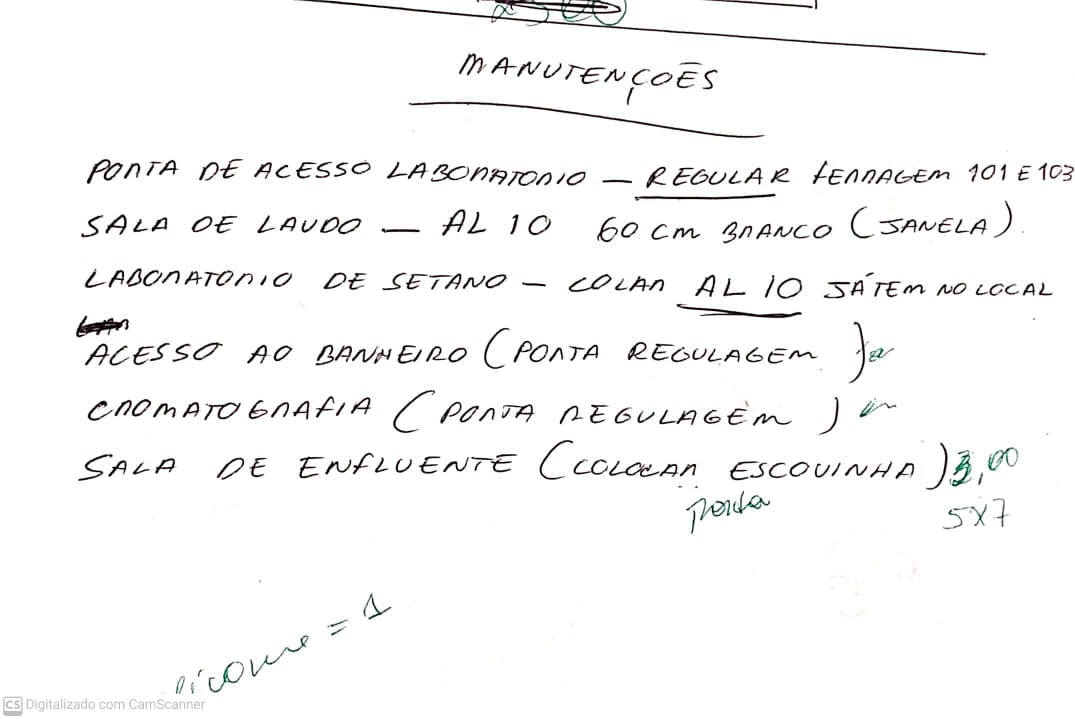 MANUTENÇOẼS
PORTA DE ACESSO LABORATORIO — REGULAR FERRAGEM 101 E 103
SALA DE LAUDO — AL 10 60 cm BRANCO (JANELA).
LABORATORIO DE SETANO — COLAR AL 10 JÁ TEM NO LOCAL
ACESSO AO BANHEIRO (PORTA REGULAGEM)
CROMATOGRAFIA (PORTA REGULAGEM)
SALA DE ENFLUENTE (COLOCAR ESCOVINHA) 3,00
Porta 5X7
= 1
CS Digitalizado com CamScanner